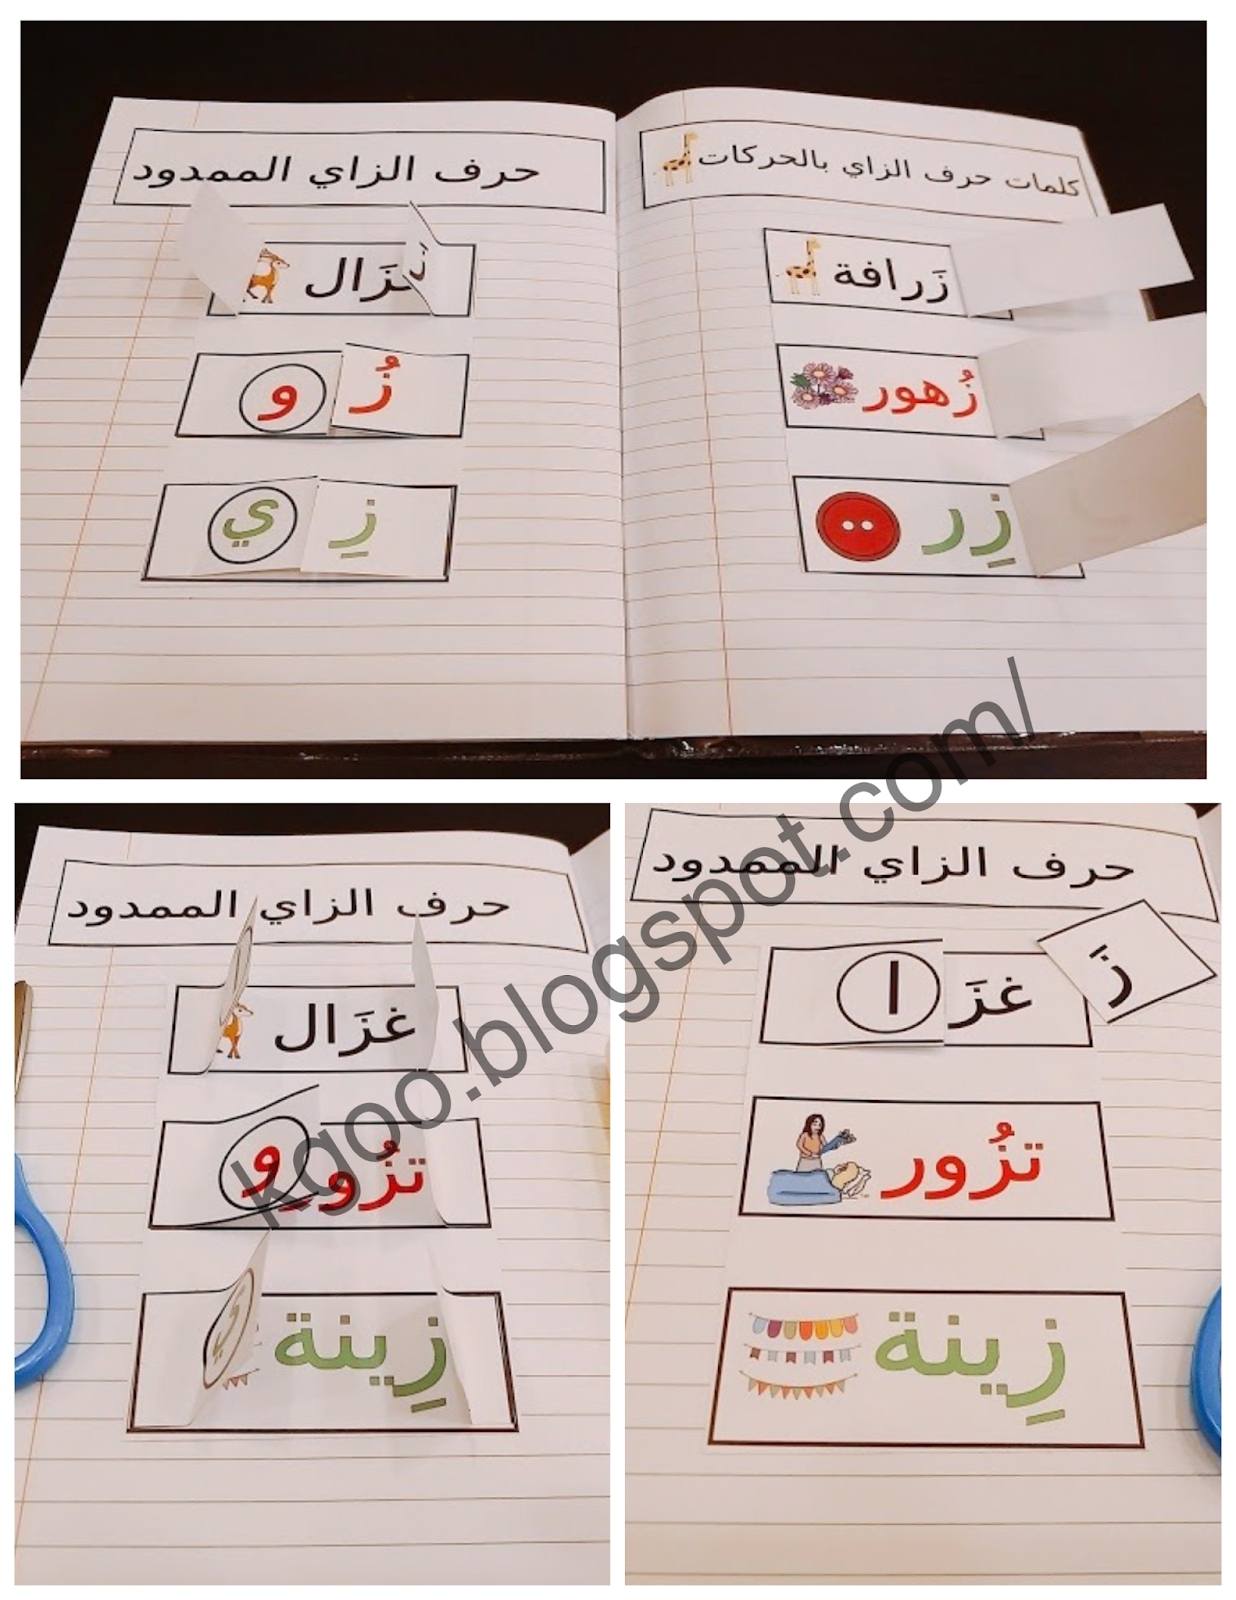 كلمات حرف الزاي بالحركات
زَرافة
زُهور
زِر
حرف الزاي الممدود
غزَال
زُ و
زِ ي
حرف الزاي الممدود
غزَال
و تزُور
ي زِينة
حرف الزاي الممدود
زَ
غزَ ا
تزُور
زِينة
kgoo.blogspot.com/